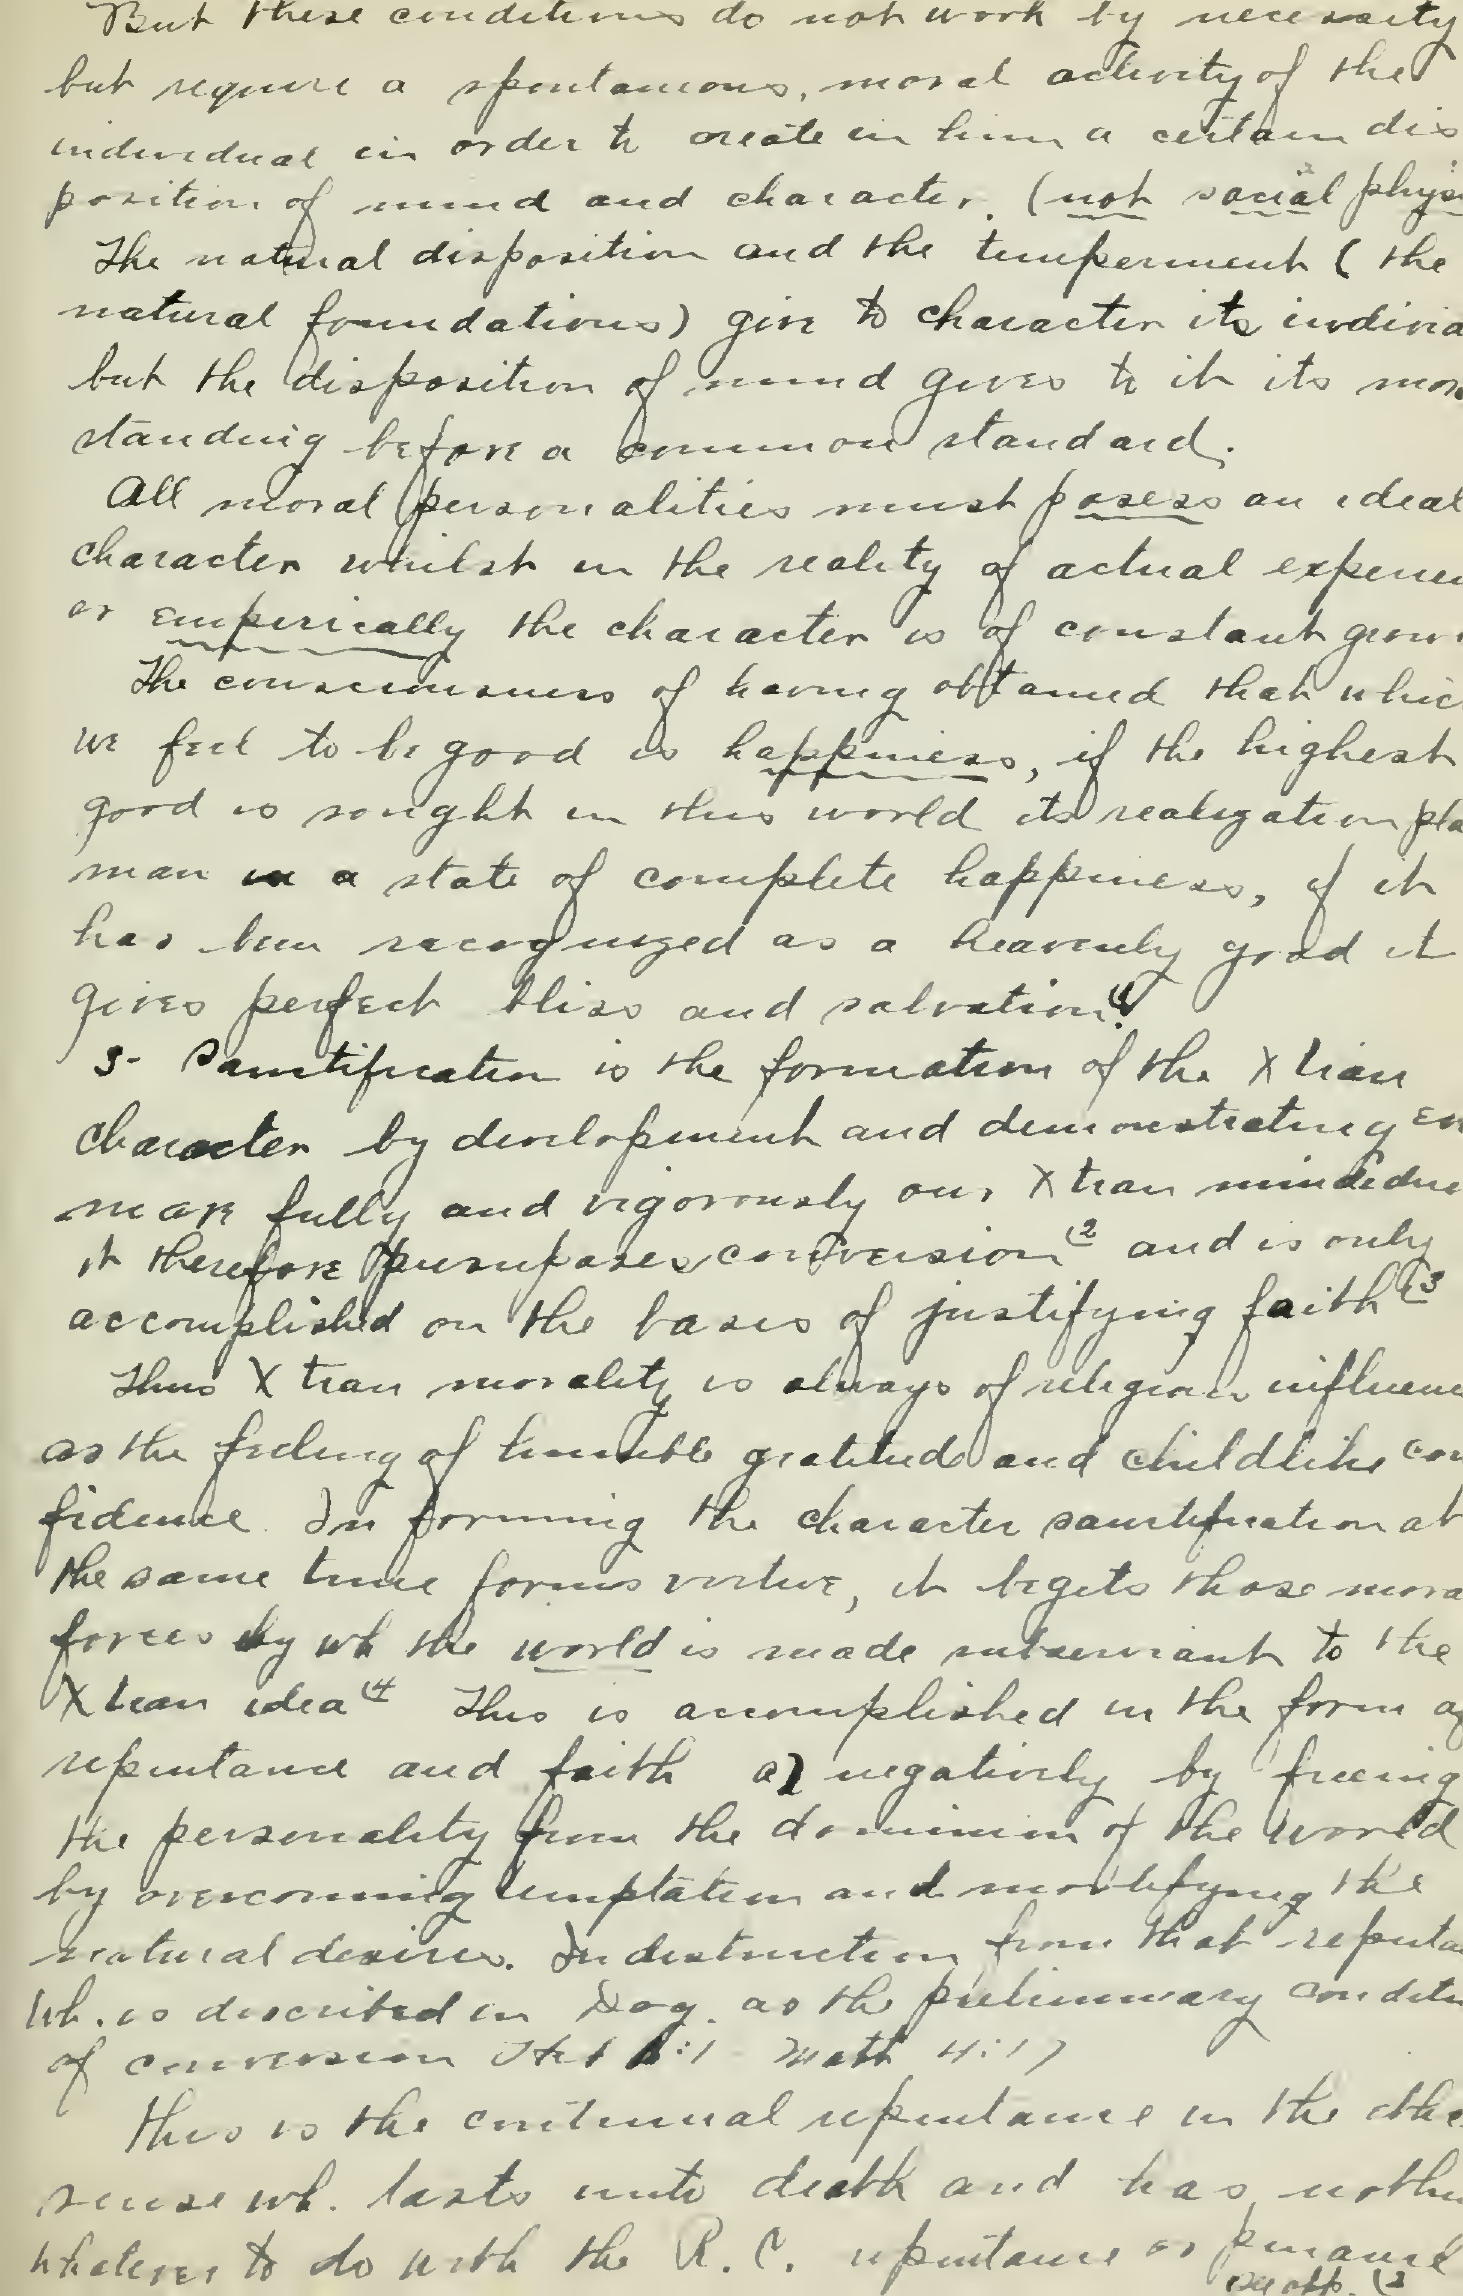 But these conditions do not work by necessity
but require a spontaneous, moral activity of the
individual in order to create in him a certain dis
position of mind and character. (not social phys
The natural disposition and the temperment (the
natural foundations) give to character its individ
but the disposition of mind gives to it its mor
standing before a common standard.
All moral personalities must posess an ideal
character whilst in the reality of actual experien
or empirically the character is of constant grow
The consciousness of having obtained that whic
we feel to be good is happiness, if the highest
good is sought in this world its realization pla
man in a state of complete happiness, if it
has been recognized as a heavenly good it
gives perfect bliss and salvation.
3- Sanctification is the formation of the Xtian
character by development and demonstrating ev
more fully and vigorously our Xtian mindedne
it therefore presuposes conversion (2 and is only
accomplished on the basis of justifying faith (3
Thus Xtian morality is always of religious influenc
as the feeling of humble gratitude and childlike con
fidence. In forming the character sanctification at
the same time forms virtue, it begets those mora
forces by wh the world is made subserviant to the
Xtian idea (4 This is accomplished in the form of
repentance and faith a) negatively by freeing
the personality from the dominion of the world
by overcoming temptation and mortifying the
natural desires. In distinction from that repenta
wh. is described in Dog. as the preliminary conditi
of conversion :1 - Math 4:17
This is the continual repentance in the ethic
sense wh. lasts unto death and has nothin
whatever to do with the R. C. repentance or penance
(2